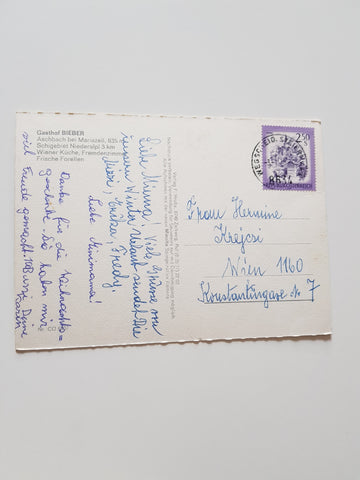 Gasthof BIEBER
Aschbach bei Mariazell, 835 m
Schigebiet Niederalpl 3 km
Wiener Küche, Fremdenzimmer
Frische Forellen
Liebe Minna! Viele Grüsse von
unserem Winter Urlaub sendet Dir
Mizzi, Erika, Fredy.
Liebe Minemama!
Danke für die Weihnachts=
geschenke. Sie haben mir
viel Freude gemacht. 1000 Bussi Deine
Karin
2.50
REPUBLIK ÖSTERREICH
8634
Frau Hermine
Krejcsi
Wien 1160
Konstantingasse № 7